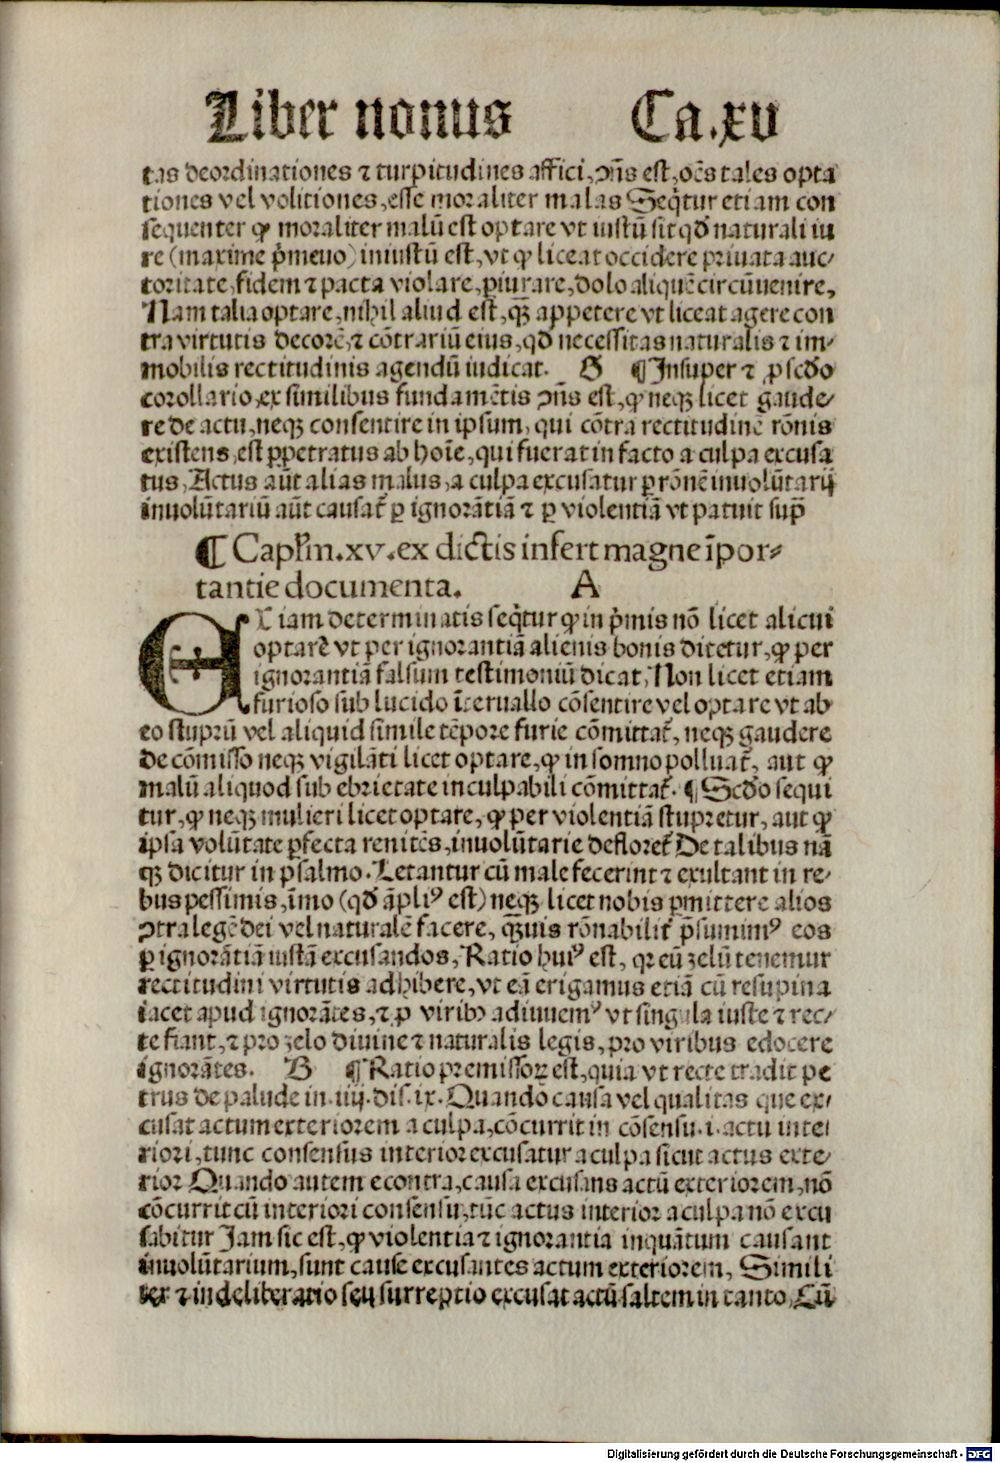 Liber nonus Ca.xv
tas deordinationes ⁊ turpitudines affici, ꝯñs est, oẽs tales opta
tiones vel volitiones, esse moraliter malas Seq̃tur etiam con
sequenter ꝙ moraliter malũ est optare vt iustũ sit qđ naturali iu
re (maxime p̃meuo) iniustũ est, vt ꝙ liceat occidere priuata auc⸗
toritate, fidem ⁊ pacta violare, ꝑiurare, dolo aliquẽ circũuenire,
Nam talia optare, nihil aliud est, q̃ꝫ appetere vt liceat agere con
tra virtutis decorẽ, ⁊ cõtrariũ eius, qđ necessitas naturalis ⁊ im⸗
mobilis rectitudinis agendũ iudicat. B ¶ Insuper ⁊ ꝓ scđo
corollario, ex similibus fundamẽtis ꝯñs est, ꝙ neqꝫ licet gaude⸗
re de actu, neqꝫ consentire in ipsum, qui cõtra rectitudinẽ rõnis
existens, est ꝑpetratus ab hoĩe, qui fuerat in facto a culpa excusa
tus, Actus aũt alias malus, a culpa excusatur ꝑ rõnẽ inuolũtarij
inuolũtariũ aũt causat᷑ ꝑ ignorãtiã ⁊ ꝑ violentiã vt patuit sup̃
¶ Capl̃m.xv.ex dictis infert magne ĩpor⸗
tantie documenta. A
Etiam determinatis seq̃tur ꝙ in p̃mis nõ licet alicui
optare vt per ignorantiã alienis bonis ditetur, ꝙ per
ignorantiã falsum testimoniũ dicat, Non licet etiam
furioso sub lucido ĩteruallo cõsentire vel optare vt ab
eo stuprũ vel aliquid simile tẽpore furie cõmittat᷑, neqꝫ gaudere
de cõmisso neqꝫ vigilãti licet optare, ꝙ in somno polluat᷑, aut ꝙ
malũ aliquod sub ebrietate inculpabili cõmittat᷑. ¶ Scđo sequi
tur, ꝙ neqꝫ mulieri licet optare, ꝙ per violentiã stupretur, aut ꝙ
ipsa volũtate ꝑfecta renitẽs, inuolũtarie defloret᷑ De talibus nã
qꝫ dicitur in psalmo. Letantur cũ male fecerint ⁊ exultant in re⸗
bus pessimis, ĩmo (qđ ãpliꝰ est) neqꝫ licet nobis ꝑmittere alios
ꝯtra legẽ dei vel naturalẽ facere, q̃ꝫuis rõnabilit᷑ p̃sumimꝰ eos
ꝑ ignorãtiã iustã excusandos, Ratio huiꝰ est, qꝛ eũ zelũ tenemur
rectitudini virtutis adhibere, vt eã erigamus etiã cũ resupina
iacet apud ignorãtes, ⁊ ꝓ viribꝫ adiuuemꝰ vt singula iuste ⁊ rec⸗
te fiant, ⁊ pro zelo diuine ⁊ naturalis legis, pro viribus edocere
ignorãtes. B ¶ Ratio premissoꝝ est, quia vt recte tradit pe
trus de palude in.iiij.dis.ix. Quando causa vel qualitas que ex⸗
cusat actum exteriorem a culpa, cõcurrit in cõsensu.i.actu inte⸗
riori, tunc consensus interior excusatur a culpa sicut actus exte⸗
rior Quando autem econtra, causa excusans actũ exteriorem, nõ
cõcurrit cũ interiori consensu, tũc actus interior a culpa nõ excu
sabitur Jam sic est, ꝙ violentia ⁊ ignorantia inquãtum causant
inuolũtarium, sunt cause excusantes actum exteriorem, Simili
ter ⁊ indeliberatio seu surreptio excusat actũ saltem in tanto, Cũ
Digitalisierung gefördert durch die Deutsche Forschungsgemeinschaft - DFG